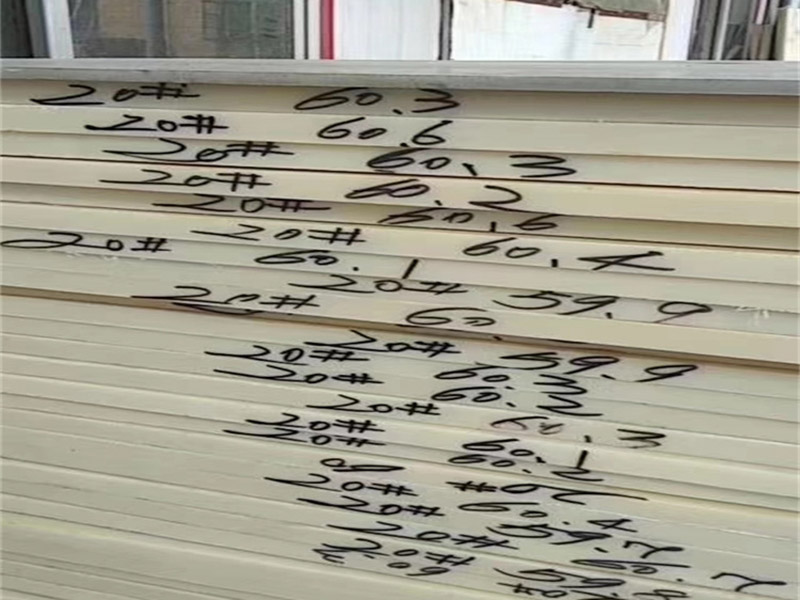 20# 60.3
20# 60.6
20# 60.3
20# 60.2
20# 60.6
20# 60.4
20# 60.1
20# 59.9
20# 60.
20# 59.9
20# 60.3
20# 60.2
20# 60.3
20# 60.1
20# 60.2
20# 60.4
20# 59.7
20# 60.7
20# 59.8